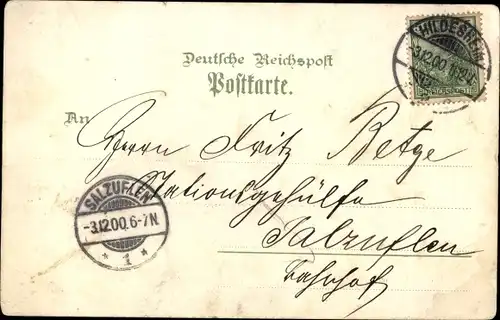 HILDESHEIM
3.12.00.
Deutsche Reichspost
Postkarte.
An
Herrn Fritz Betge
Stationsgehülfe
Salzuflen
Bahnhof
SALZUFLEN
-3.12.00.6-7N.
* 1 *